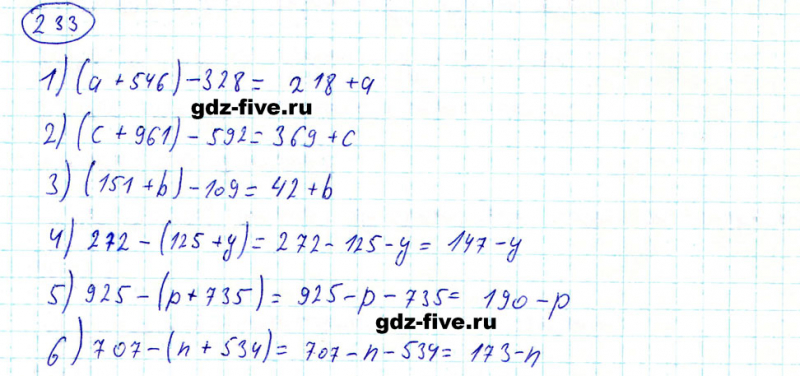 233
1) (a + 546) - 328 = 218 + a
gdz-five.ru
2) (c + 961) - 592 = 369 + c
3) (151 + b) - 109 = 42 + b
4) 272 - (125 + y) = 272 - 125 - y = 147 - y
5) 925 - (p + 735) = 925 - p - 735 = 190 - p
gdz-five.ru
6) 707 - (n + 534) = 707 - n - 534 = 173 - n